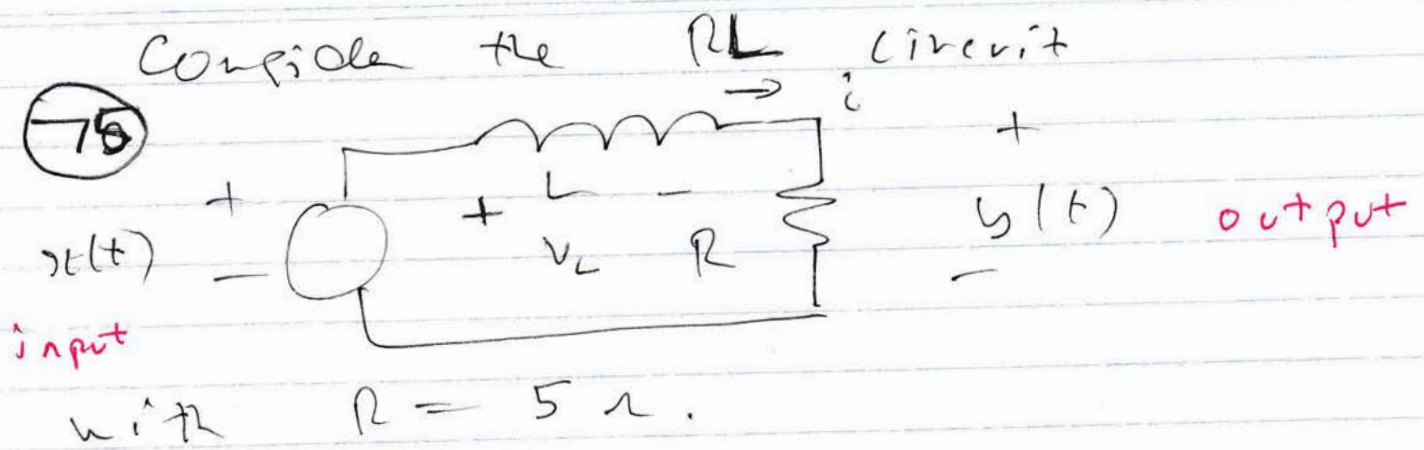 Consider the RL circuit
75
→ i
+ L - +
+ V_L R y(t) output
x(t) -
- input
with R = 5 Ω.